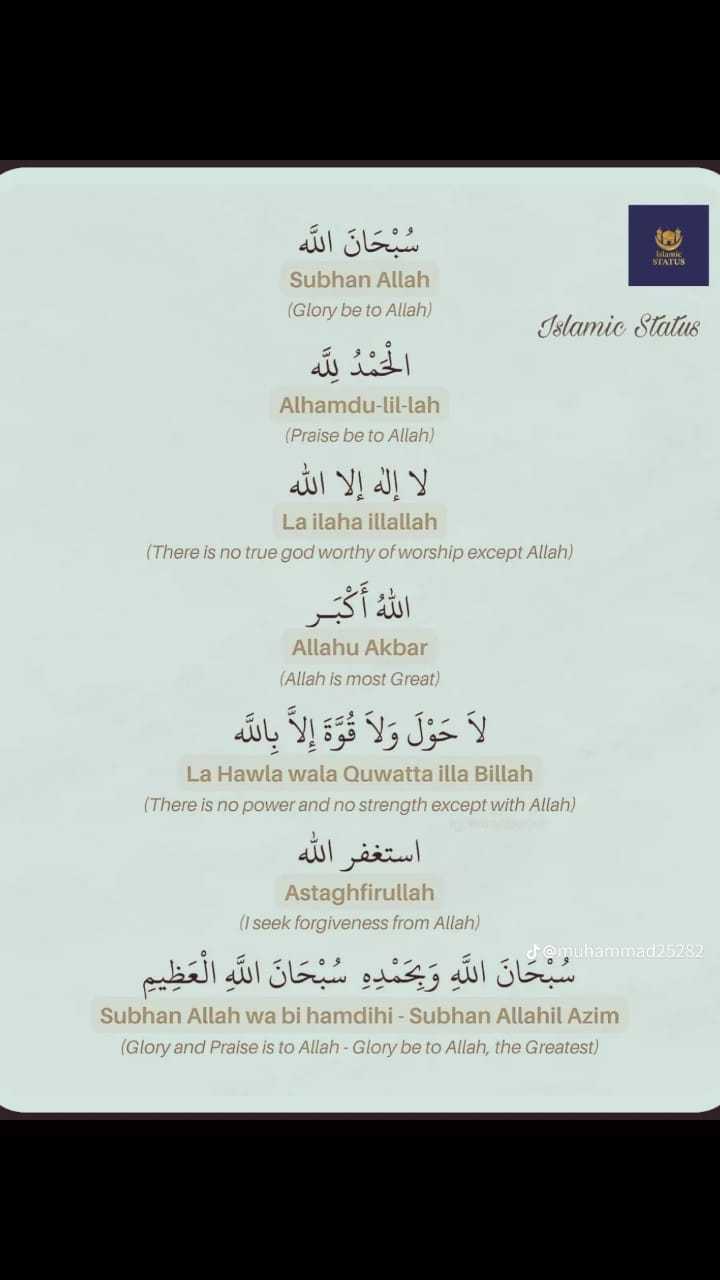 سُبْحَانَ اللَّه
Subhan Allah
(Glory be to Allah)
Islamic
STATUS
Islamic Status
الْحَمْدُ لِلَّه
Alhamdu-lil-lah
(Praise be to Allah)
لا إله إلا الله
La ilaha illallah
(There is no true god worthy of worship except Allah)
اللهُ أَكْبَـــر
Allahu Akbar
(Allah is most Great)
لاَ حَوْلَ وَلاَ قُوَّةَ إِلاَّ بِاللَّه
La Hawla wala Quwatta illa Billah
(There is no power and no strength except with Allah)
استغفر الله
Astaghfirullah
(I seek forgiveness from Allah)
@muhammad25282
سُبْحَانَ اللَّهِ وَبِحَمْدِهِ سُبْحَانَ اللَّهِ الْعَظِيمِ
Subhan Allah wa bi hamdihi - Subhan Allahil Azim
(Glory and Praise is to Allah - Glory be to Allah, the Greatest)